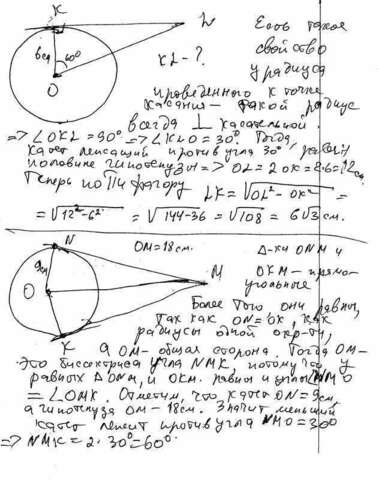 K
L
6см
60°
O
KL - ?
Есть такое
свойство
у радиуса
проведенного к точке
касания - такой радиус
всегда ⊥ касательной
=> ∠OKL = 90° => ∠KLO = 30° Тогда
катет лежащий против угла 30° равен
половине гипотенузы => OL = 2OK = 2·6 = 12см
Теперь по Пифагору LK = √OL² - OK² =
= √12² - 6² = √144 - 36 = √108 = 6√3 см.
N
OM = 18см.
9см
O
M
K
Δ-ки ONM и
OKM - прямо-
угольные
Более того они равны,
так как ON = OK, как
радиусы одной окр-ти,
а OM - общая сторона. Тогда OM -
это биссектриса угла NMK, потому что у
равных Δ ONM, и OKM. равны и углы ∠NMO
= ∠OMK. Отметим, что катет ON = 9см,
а гипотенуза OM - 18см. Значит меньший
катет лежит против угла NMO = 30°
=> NMK = 2·30° = 60°.